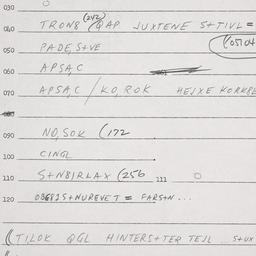 030
040 TRON8 (2V2) QAP JUXTENE S+TIVL =
050 PADE, S+VE (05104
060 APSA, C
070 APSA, C / KO, ROK HEJXE KORKBE
090 NO, SOK (172
100 CINGL
110 S+N8IRLAX (256 111 O
120 S+NUREVET = FARS+N...
(TILOK QGL HINTERS+TER TEIL S+UX